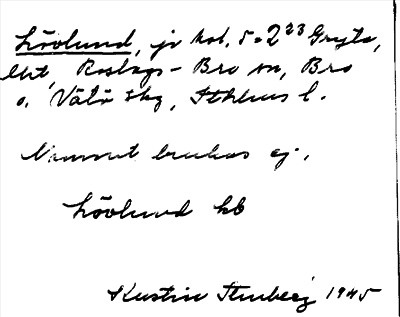 Lövlund, jr kol. 5=2²³ Gryta,
lht, Roslags-Bro sn, Bro
o. Vätö skg, Sthlms l.
Namnet brukas ej.
Lövlund hb
Kerstin Stenberg 1945